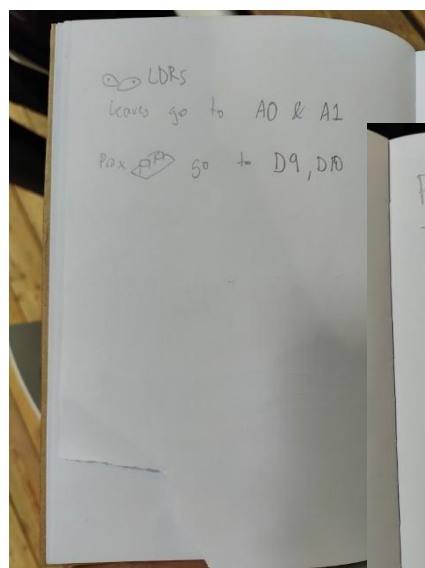 LDRs
Leaves go to A0 & A1
Pax go to D9, D10